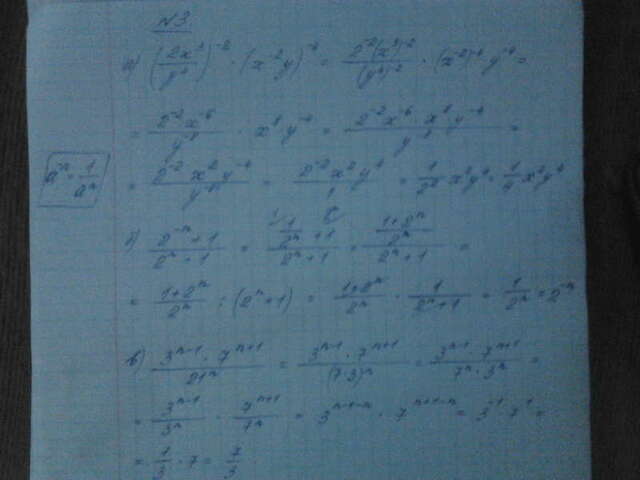 №3.
а) (2x³/y⁴)⁻² · (x⁻²y)⁻⁴ = 2⁻²(x³)⁻²/(y⁴)⁻² · (x⁻²)⁻⁴ y⁻⁴ =
= 2⁻²x⁻⁶/y⁻⁸ · x⁸ y⁻⁴ = 2⁻² x⁻⁶ · x⁸ y⁻⁴/y⁻⁸ =
a⁻ⁿ = 1/aⁿ
= 2⁻² x² y⁻⁴/y⁻⁸ = 2⁻² x² y⁴/1 = 1/2² x² y⁴ = 1/4 x² y⁴
б) (2⁻ⁿ + 1)/(2ⁿ + 1) = (1/2ⁿ + 1)/(2ⁿ + 1) = ((1+2ⁿ)/2ⁿ)/(2ⁿ + 1) =
= (1+2ⁿ)/2ⁿ : (2ⁿ + 1) = (1+2ⁿ)/2ⁿ · 1/(2ⁿ+1) = 1/2ⁿ = 2⁻ⁿ
в) 3ⁿ⁻¹ · 7ⁿ⁺¹/21ⁿ = 3ⁿ⁻¹ · 7ⁿ⁺¹/(7·3)ⁿ = 3ⁿ⁻¹ · 7ⁿ⁺¹/7ⁿ · 3ⁿ =
= 3ⁿ⁻¹/3ⁿ · 7ⁿ⁺¹/7ⁿ = 3ⁿ⁻¹⁻ⁿ · 7ⁿ⁺¹⁻ⁿ = 3⁻¹ · 7¹ =
= 1/3 · 7 = 7/3